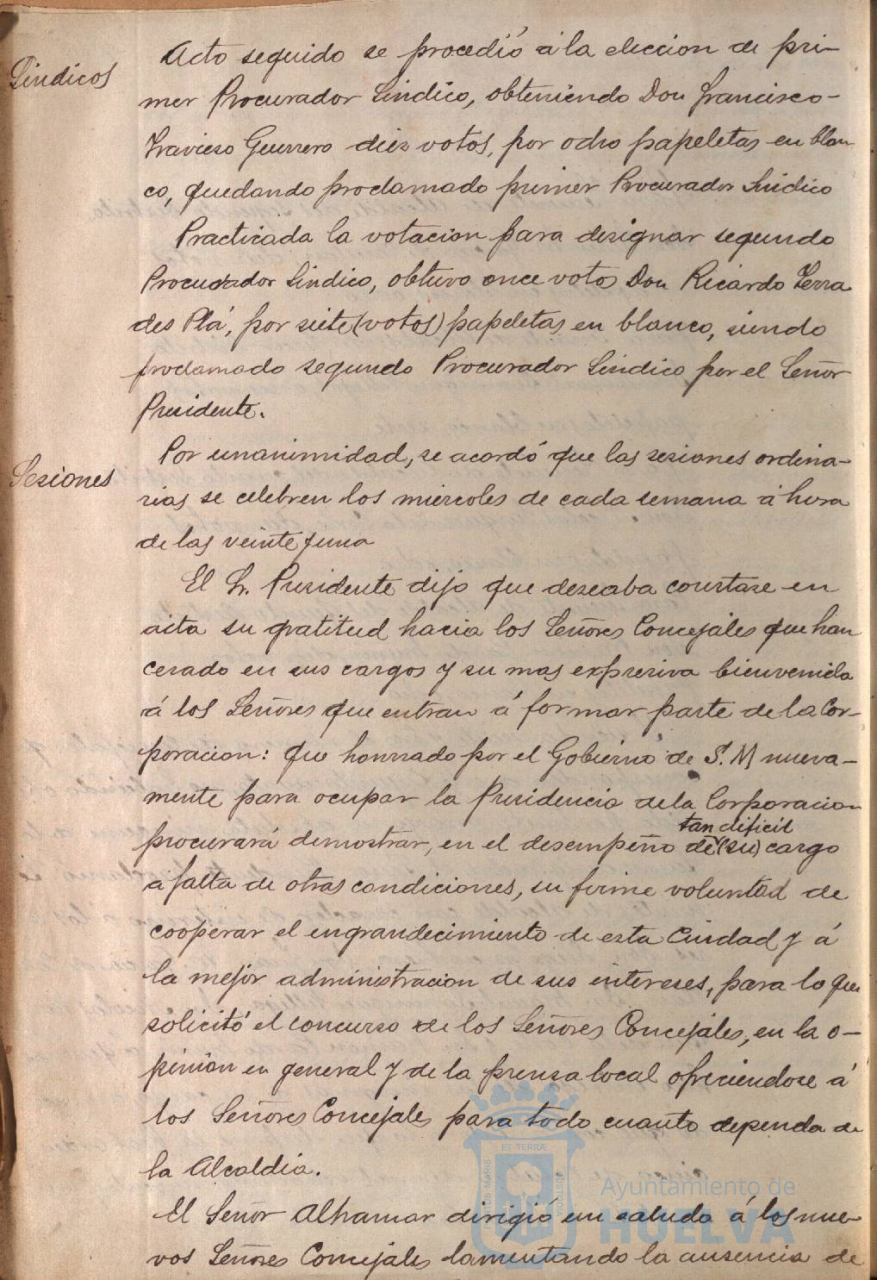 Sindicos
Acto seguido se procedió á la eleccion de pri-
mer Procurador Sindico, obteniendo Don Francisco-
Travieso Guerrero diez votos, por ocho papeletas en blan
co, quedando proclamado primer Procurador Sindico
Practicada la votacion para designar segundo
Procurador Sindico, obtuvo once votos Don Ricardo Terra
des Plá, por siete (votos) papeletas en blanco, siendo
proclamado segundo Procurador Sindico por el Señor
Presidente.
Sesiones
Por unanimidad, se acordó que las sesiones ordina-
rias se celebren los miercoles de cada semana á hora
de las veinte y una
El Sr. Presidente dijo que deseaba constase en
acta su gratitud hacia los Señores Concejales que han
cesado en sus cargos y su mas expresiva bienvenida
á los Señores que entran á formar parte de la Cor-
poracion: que honrado por el Gobierno de S. M nueva-
mente para ocupar la Presidencia de la Corporacion
procurará demostrar, en el desempeño de (su) cargo
tan dificil
a falta de otras condiciones, su firme voluntad de
cooperar el engrandecimiento de esta Ciudad y á
la mejor administracion de sus intereses, para lo que
solicitó el concurso de los Señores Concejales, en la o-
pinion en general y de la prensa local ofreciendose á
los Señores Concejales para todo cuanto dependa de
la Alcaldia.
El Señor Alhamar dirigió un saludo á los nue-
vos Señores Concejales lamentando la ausencia de
Ayuntamiento de
HUELVA